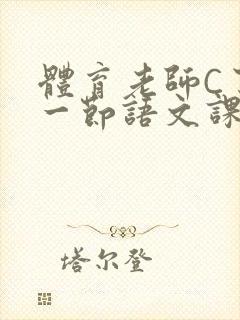 體育老師C
一節語文課
塔尔登